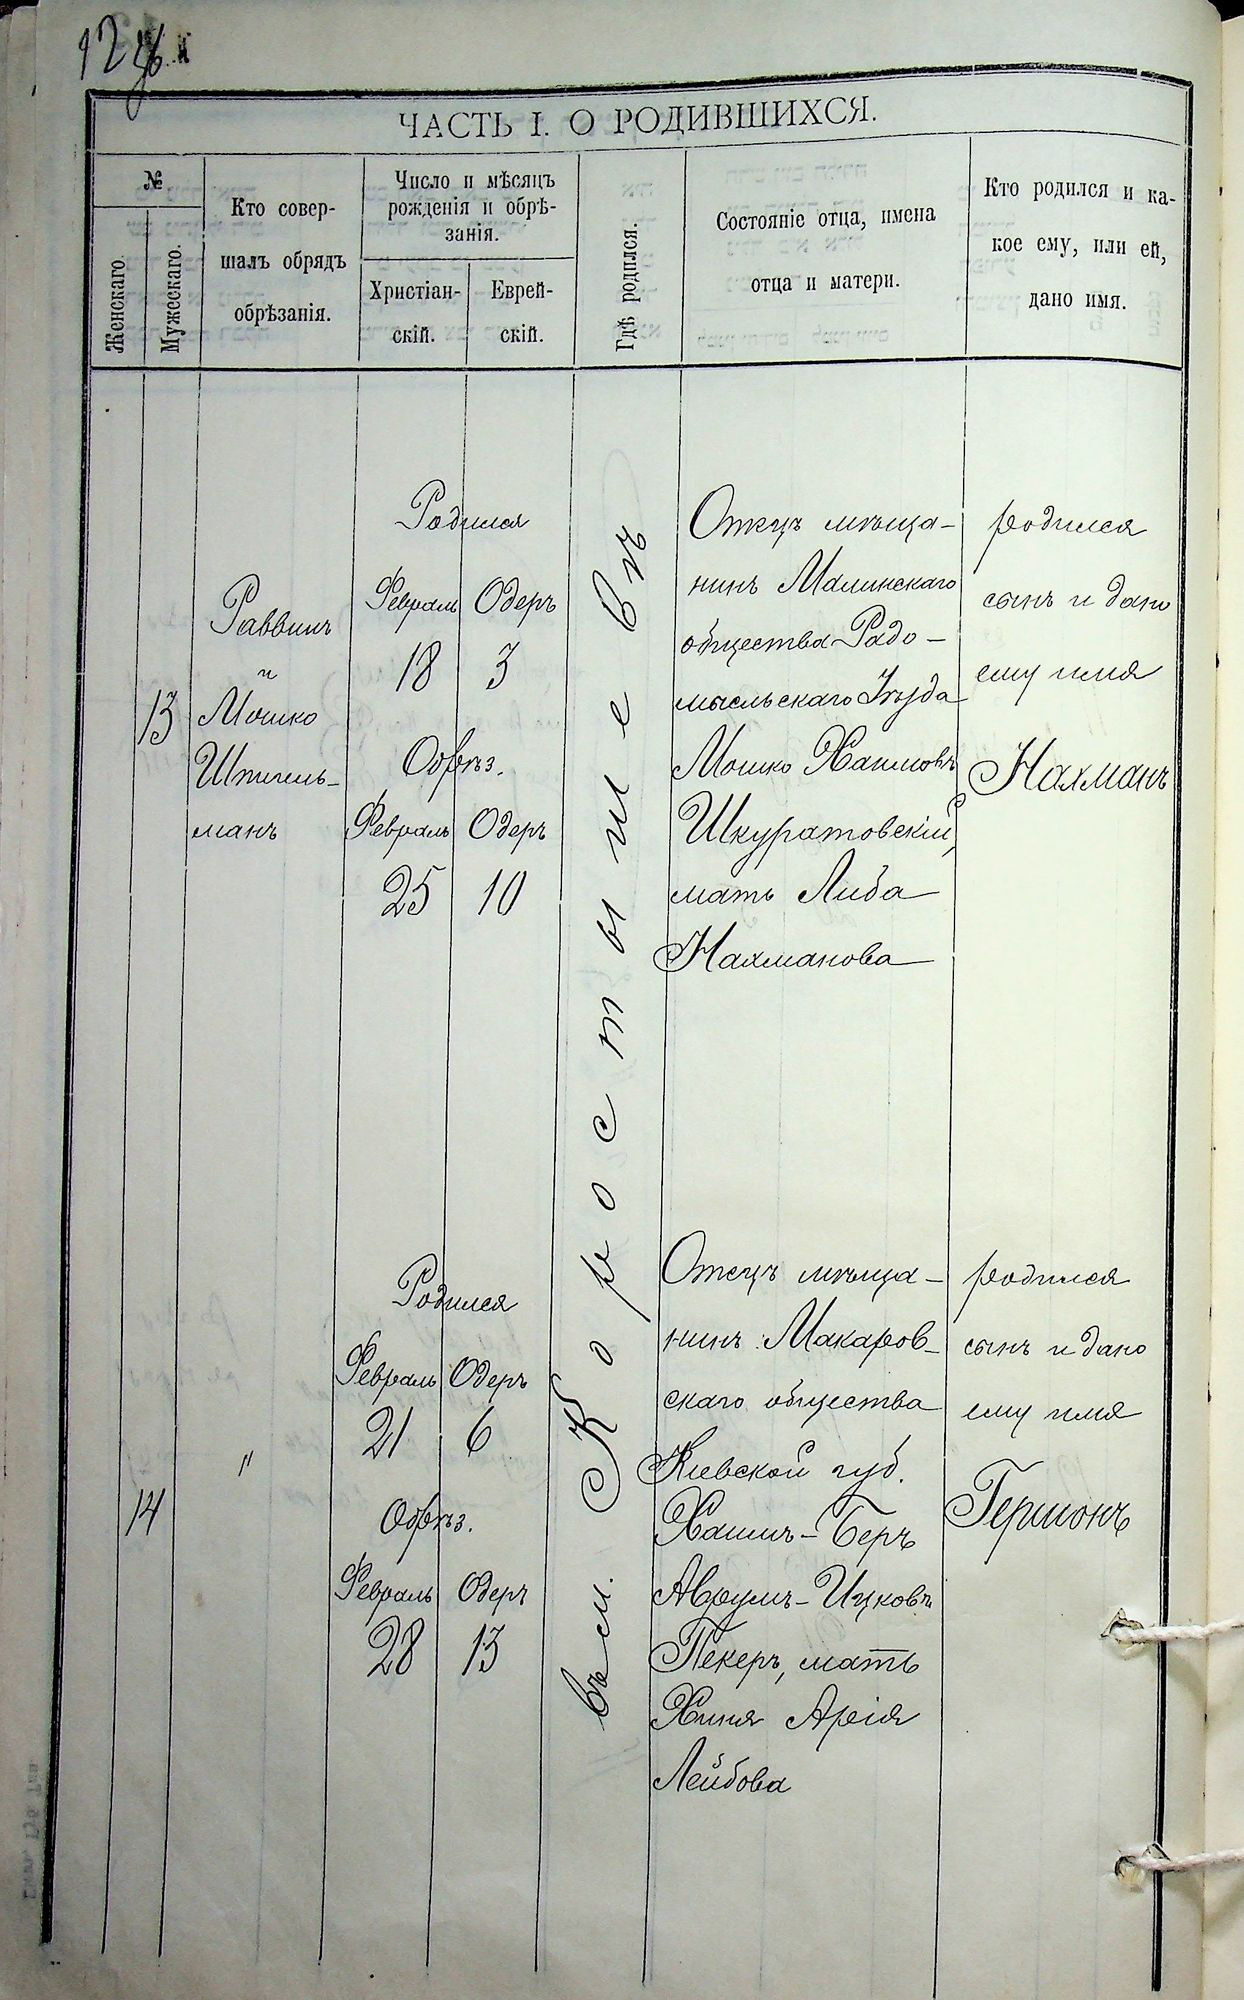 ЧАСТЬ I. О РОДИВШИХСЯ.
№
Женскаго.
Мужескаго.
Кто совер-
шалъ обрядъ
обрѣзанія.
Число и мѣсяцъ
рожденія и обрѣ-
занія.
Христіан-
скій.
Еврей-
скій.
Гдѣ родился.
Состояніе отца, имена
отца и матери.
Кто родился и ка-
кое ему, или ей,
дано имя.
13
Раввинъ
и
Мошко
Шпигель-
манъ
Родился
Февраль Одеръ
18 3
Обрѣз.
Февраль Одеръ
25 10
въ м. Коростышевѣ
Отецъ мѣща-
нинъ Малинскаго
общества Радо-
мысльскаго Уѣзда
Мошко Хаимовъ
Шкуратовскій,
мать Либа
Нахманова
родился
сынъ и дано
ему имя
Нахманъ
14
"
Родился
Февраль Одеръ
21 6
Обрѣз.
Февраль Одеръ
28 13
Отецъ мѣща-
нинъ Макаров-
скаго общества
Кіевской губ.
Хаимъ-Беръ
Аврумъ-Ицковъ
Пекеръ, мать
Хиня Арія
Лейбова
родился
сынъ и дано
ему имя
Гершонъ